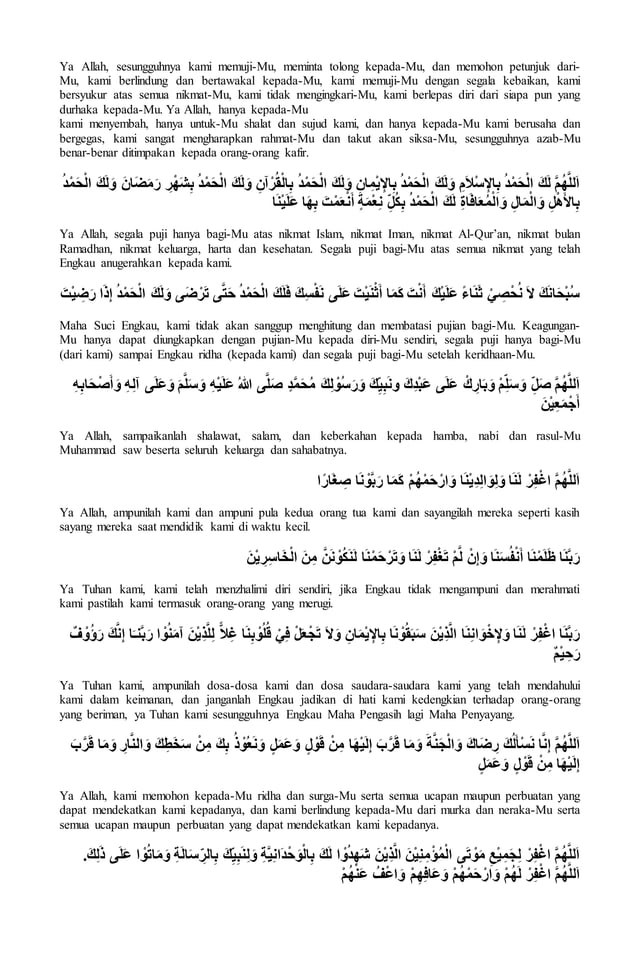 Ya Allah, sesungguhnya kami memuji-Mu, meminta tolong kepada-Mu, dan memohon petunjuk dari-
Mu, kami berlindung dan bertawakal kepada-Mu, kami memuji-Mu dengan segala kebaikan, kami
bersyukur atas semua nikmat-Mu, kami tidak mengingkari-Mu, kami berlepas diri dari siapa pun yang
durhaka kepada-Mu. Ya Allah, hanya kepada-Mu
kami menyembah, hanya untuk-Mu shalat dan sujud kami, dan hanya kepada-Mu kami berusaha dan
bergegas, kami sangat mengharapkan rahmat-Mu dan takut akan siksa-Mu, sesungguhnya azab-Mu
benar-benar ditimpakan kepada orang-orang kafir.
اَللَّهُمَّ لَكَ الْحَمْدُ بِالإِسْلاَمِ وَلَكَ الْحَمْدُ بِالإِيْمَانِ وَلَكَ الْحَمْدُ بِالْقُرْآنِ وَلَكَ الْحَمْدُ بِشَهْرِ رَمَضَانَ وَلَكَ الْحَمْدُ
بِالأَهْلِ وَالْمَالِ وَالْمُعَافَاةِ لَكَ الْحَمْدُ بِكُلِّ نِعْمَةٍ أَنْعَمْتَ بِهَا عَلَيْنَا
Ya Allah, segala puji hanya bagi-Mu atas nikmat Islam, nikmat Iman, nikmat Al-Qur’an, nikmat bulan
Ramadhan, nikmat keluarga, harta dan kesehatan. Segala puji bagi-Mu atas semua nikmat yang telah
Engkau anugerahkan kepada kami.
سُبْحَانَكَ لاَ نُحْصِيْ ثَنَاءً عَلَيْكَ أَنْتَ كَمَا أَثْنَيْتَ عَلَى نَفْسِكَ فَلَكَ الْحَمْدُ حَتَّى تَرْضَى وَلَكَ الْحَمْدُ إِذَا رَضِيْتَ
Maha Suci Engkau, kami tidak akan sanggup menghitung dan membatasi pujian bagi-Mu. Keagungan-
Mu hanya dapat diungkapkan dengan pujian-Mu kepada diri-Mu sendiri, segala puji hanya bagi-Mu
(dari kami) sampai Engkau ridha (kepada kami) dan segala puji bagi-Mu setelah keridhaan-Mu.
اَللَّهُمَّ صَلِّ وَسَلِّمْ وَبَارِكْ عَلَى عَبْدِكَ ونَبِيِّكَ وَرَسُوْلِكَ مُحَمَّدٍ صَلَّى اللهُ عَلَيْهِ وَسَلَّمَ وَعَلَى آلِهِ وَأَصْحَابِهِ
أَجْمَعِيْنَ
Ya Allah, sampaikanlah shalawat, salam, dan keberkahan kepada hamba, nabi dan rasul-Mu
Muhammad saw beserta seluruh keluarga dan sahabatnya.
اَللَّهُمَّ اغْفِرْ لَنَا وَلِوَالِدِيْنَا وَارْحَمْهُمْ كَمَا رَبَّوْنَا صِغَارًا
Ya Allah, ampunilah kami dan ampuni pula kedua orang tua kami dan sayangilah mereka seperti kasih
sayang mereka saat mendidik kami di waktu kecil.
رَبَّنَا ظَلَمْنَا أَنْفُسَنَا وَإِنْ لَّمْ تَغْفِرْ لَنَا وَتَرْحَمْنَا لَنَكُوْنَنَّ مِنَ الْخَاسِرِيْنَ
Ya Tuhan kami, kami telah menzhalimi diri sendiri, jika Engkau tidak mengampuni dan merahmati
kami pastilah kami termasuk orang-orang yang merugi.
رَبَّنَا اغْفِرْ لَنَا وَلإِخْوَانِنَا الَّذِيْنَ سَبَقُوْنَا بِالإِيْمَانِ وَلاَ تَجْعَلْ فِيْ قُلُوْبِنَا غِلاًّ لِلَّذِيْنَ آمَنُوْا رَبَّنَا إِنَّكَ رَؤُوْفٌ
رَحِيْمٌ
Ya Tuhan kami, ampunilah dosa-dosa kami dan dosa saudara-saudara kami yang telah mendahului
kami dalam keimanan, dan janganlah Engkau jadikan di hati kami kedengkian terhadap orang-orang
yang beriman, ya Tuhan kami sesungguhnya Engkau Maha Pengasih lagi Maha Penyayang.
اَللَّهُمَّ إِنَّا نَسْأَلُكَ رِضَاكَ وَالْجَنَّةَ وَمَا قَرَّبَ إِلَيْهَا مِنْ قَوْلٍ وَعَمَلٍ وَنَعُوْذُ بِكَ مِنْ سَخَطِكَ وَالنَّارِ وَمَا قَرَّبَ
إِلَيْهَا مِنْ قَوْلٍ وَعَمَلٍ
Ya Allah, kami memohon kepada-Mu ridha dan surga-Mu serta semua ucapan maupun perbuatan yang
dapat mendekatkan kami kepadanya, dan kami berlindung kepada-Mu dari murka dan neraka-Mu serta
semua ucapan maupun perbuatan yang dapat mendekatkan kami kepadanya.
اَللَّهُمَّ اغْفِرْ لِجَمِيْعِ مَوْتَى الْمُؤْمِنِيْنَ الَّذِيْنَ شَهِدُوْا لَكَ بِالْوَحْدَانِيَّةِ وَلِنَبِيِّكَ بِالرِّسَالَةِ وَمَاتُوْا عَلَى ذَلِكَ.
اَللَّهُمَّ اغْفِرْ لَهُمْ وَارْحَمْهُمْ وَعَافِهِمْ وَاعْفُ عَنْهُمْ